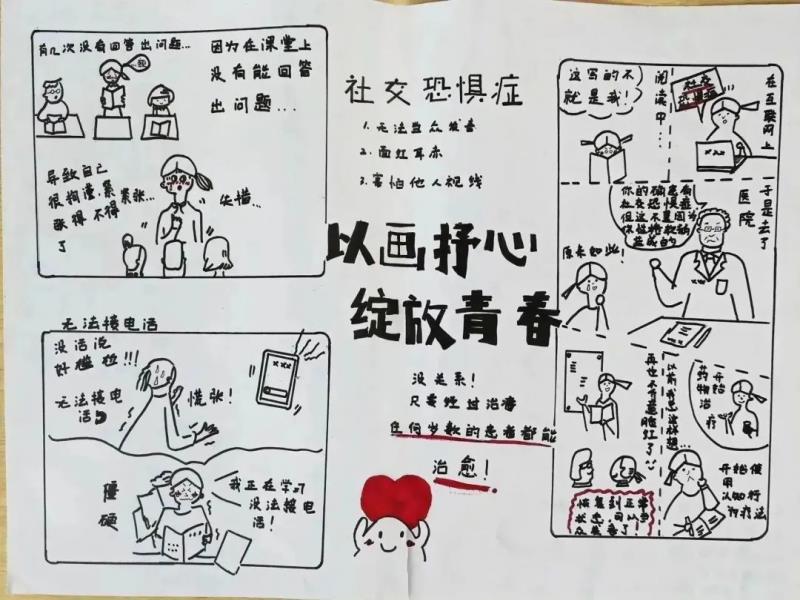 有几次没有回答出问题...
因为在课堂上
没有能回答
出问题...
导致自己
很拘谨.紧
张得不得
了
紧张...
失措...
无法接电话
没话说
好尴尬!!!
无法接电
话
慌张!
僵
硬
我正在学习
没法接电
话!
社交恐惧症
1.无法当众发言
2.面红耳赤
3.害怕他人视线
以画抒心
绽放青春
没关系!
只要经过治疗
任何岁数的患者都能
治愈!
在互联网上
社交
恐惧症
阅读中...
这写的不
就是我!
于是去了
医院
你的确患有
社交恐惧症
但这不是因为
你性格软弱
造成的
原来如此!
开始
药物治
疗
以前我总这样想...
开始使
用
认知行
为疗法
再也不会羞脸红了
恢复到正常
状态,可以当
众发言了